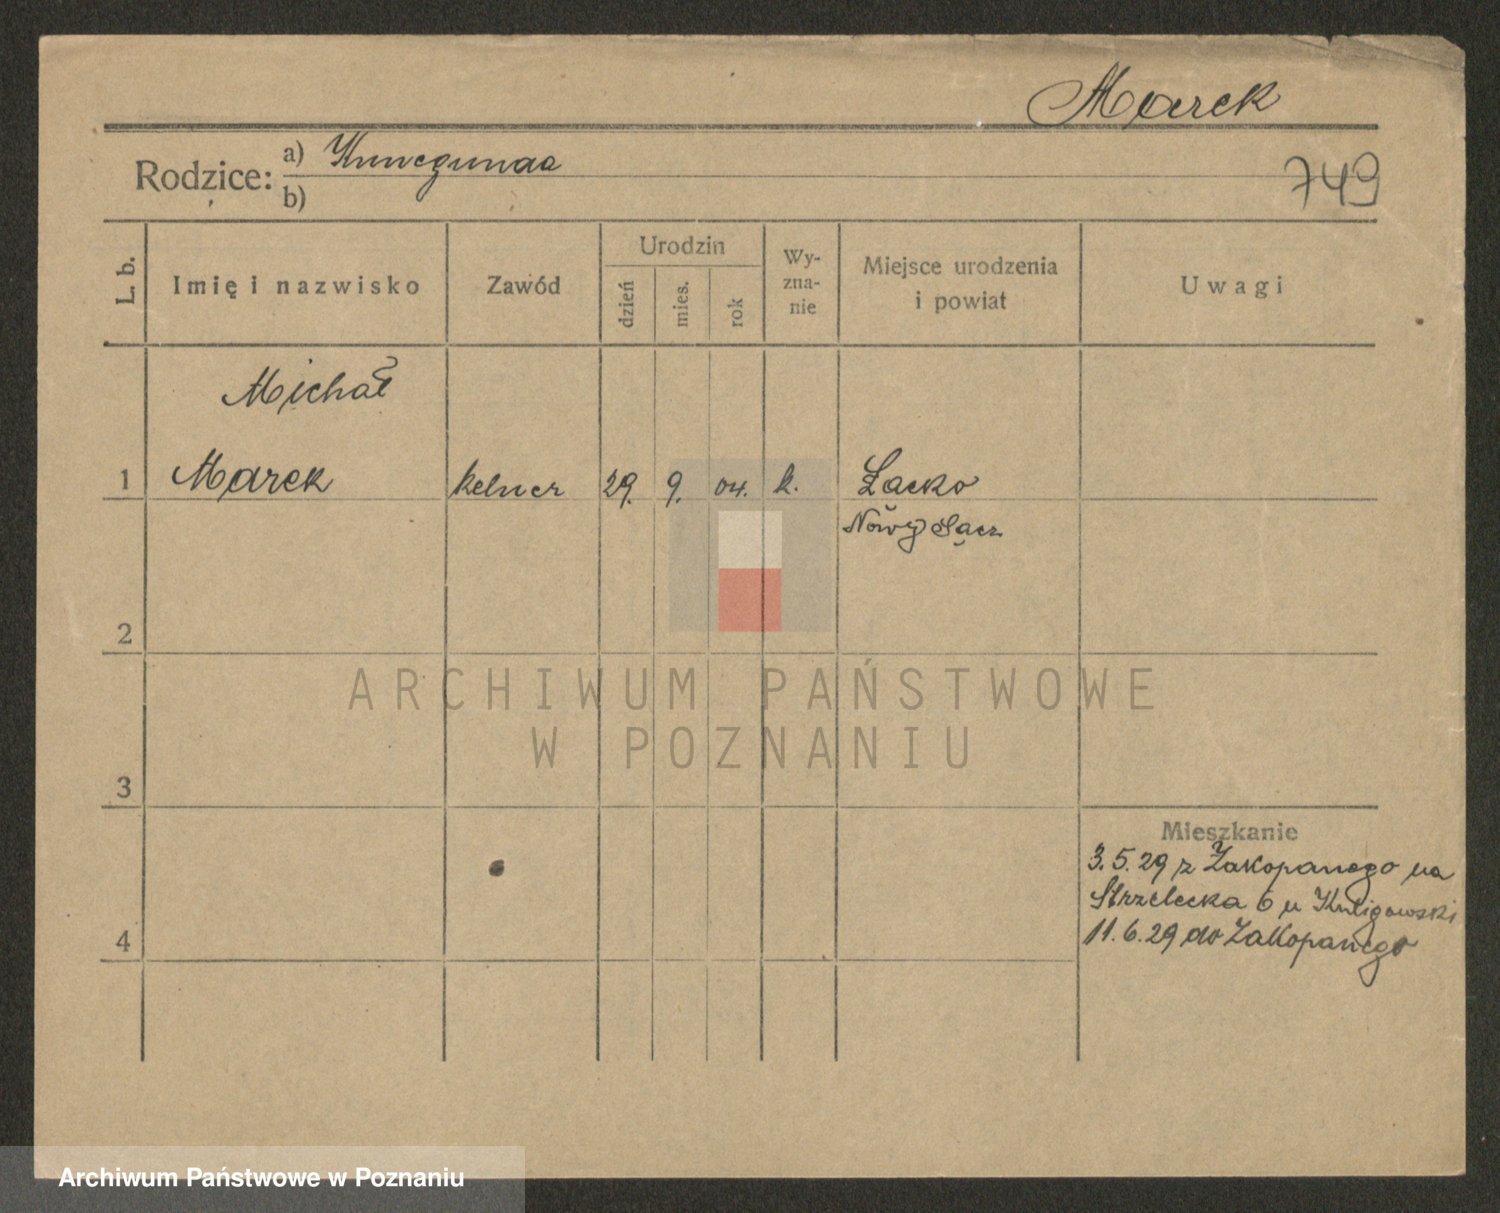 Marek
Rodzice: a) Kunegunda
b)
749
L. b.
Imię i nazwisko
Zawód
Urodzin
dzień
mies.
rok
Wy-
zna-
nie
Miejsce urodzenia
i powiat
Uwagi
Michał
1 Marek kelner 29. 9. 04. k. Łącko
Nowy Sącz
2
3
4
Mieszkanie
3.5.29 z Zakopanego na
Strzelecka 6 u Kuligowski
11.6.29 do Zakopanego
ARCHIWUM PAŃSTWOWE
W POZNANIU
Archiwum Państwowe w Poznaniu